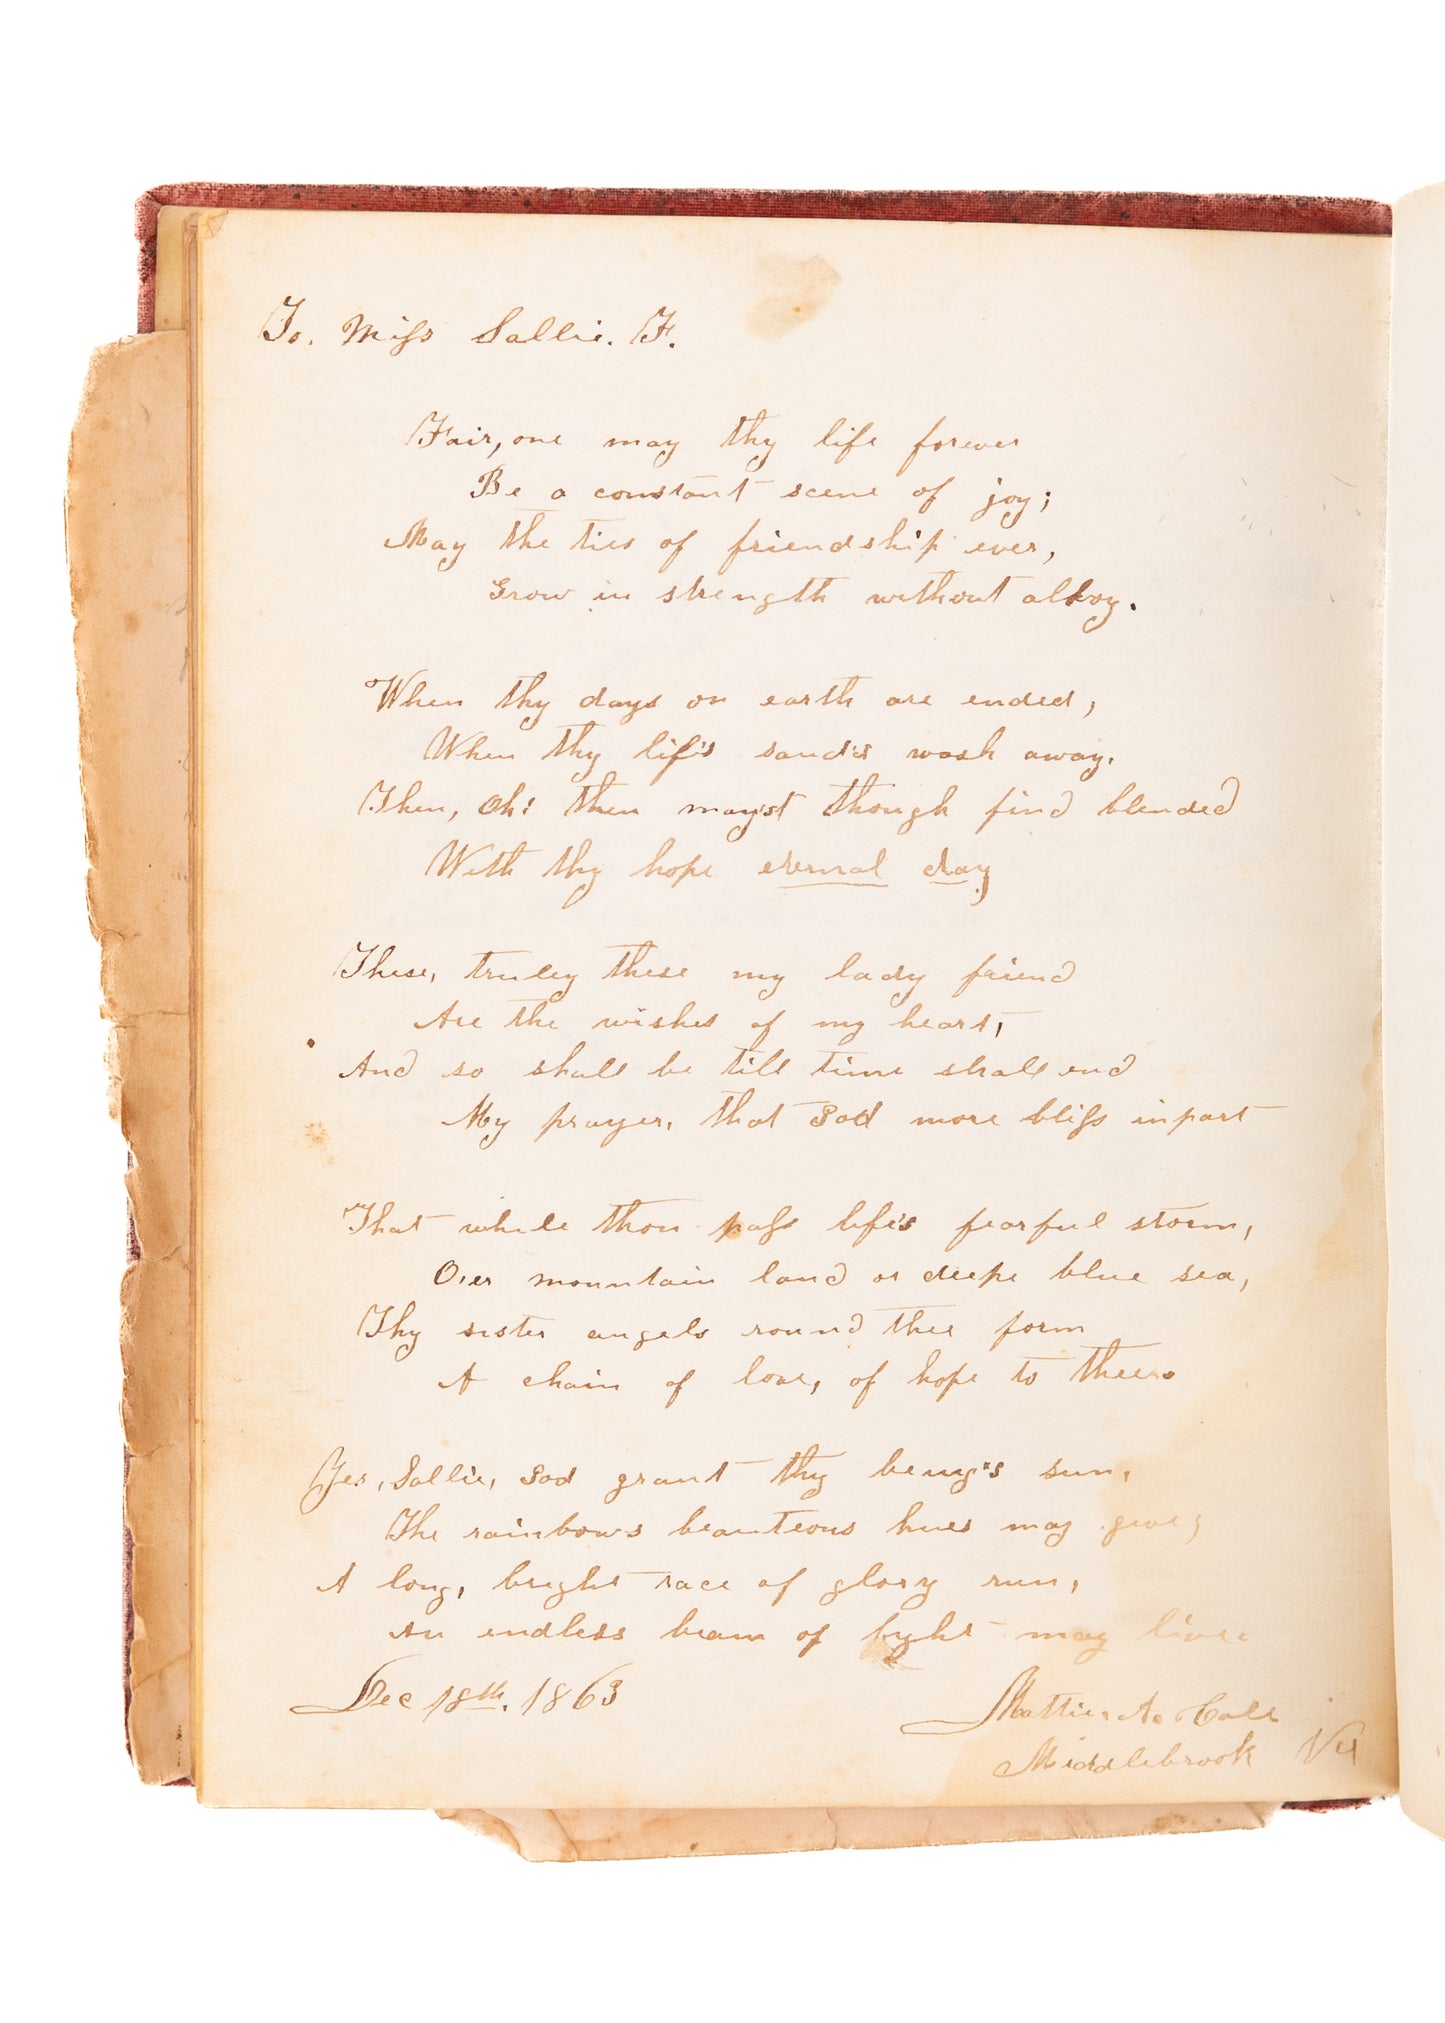 To. Miss Sallie. F.
Fair, one may thy life forever
Be a constant scene of joy;
May the ties of friendship ever,
Grow in strength without alloy.
When thy days on earth are ended,
When thy life's sands wash away.
Then, Oh! then mayst though find blended
With thy hope eternal day
These, truley these my lady friend
Are the wishes of my heart,
And so shall be till time shall end
My prayer, that God more bliss inpart
That while thou pass life's fearful storm,
O'er mountain land or deepe blue sea,
Thy sister angels round thee form
A chain of love, of hope to thee.
Yes, Sallie, God grant thy being's sun,
The rainbows beauteous hues may give;
A long, bright race of glory run,
An endless beam of light may live.
Dec 18th. 1863
Mattie. A. Call
Middlebrook Va